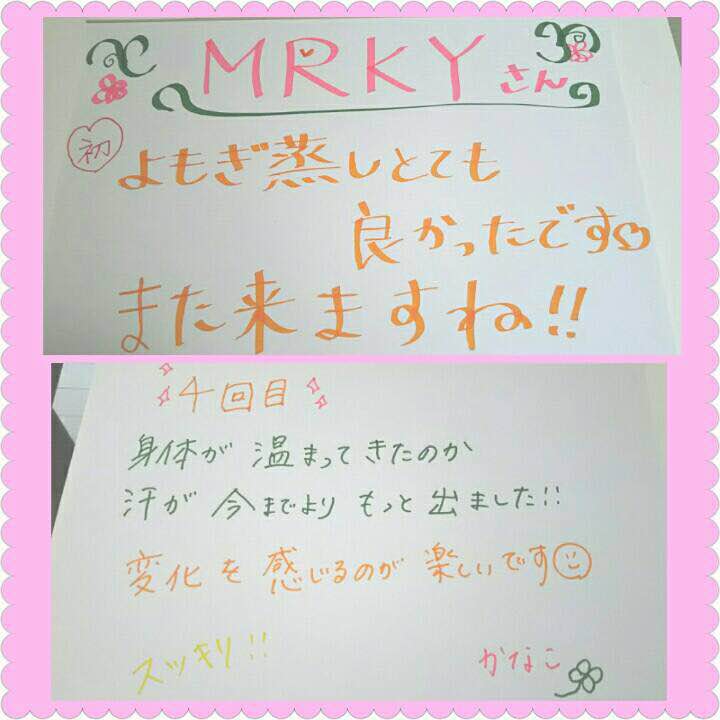 MRKYさん
初
よもぎ蒸しとても
良かったです
また来ますね!!
4回目
身体が 温まってきたのか
汗が 今までより もっと 出ました!!
変化を 感じるのが 楽しいです
スッキリ!!
かなこ